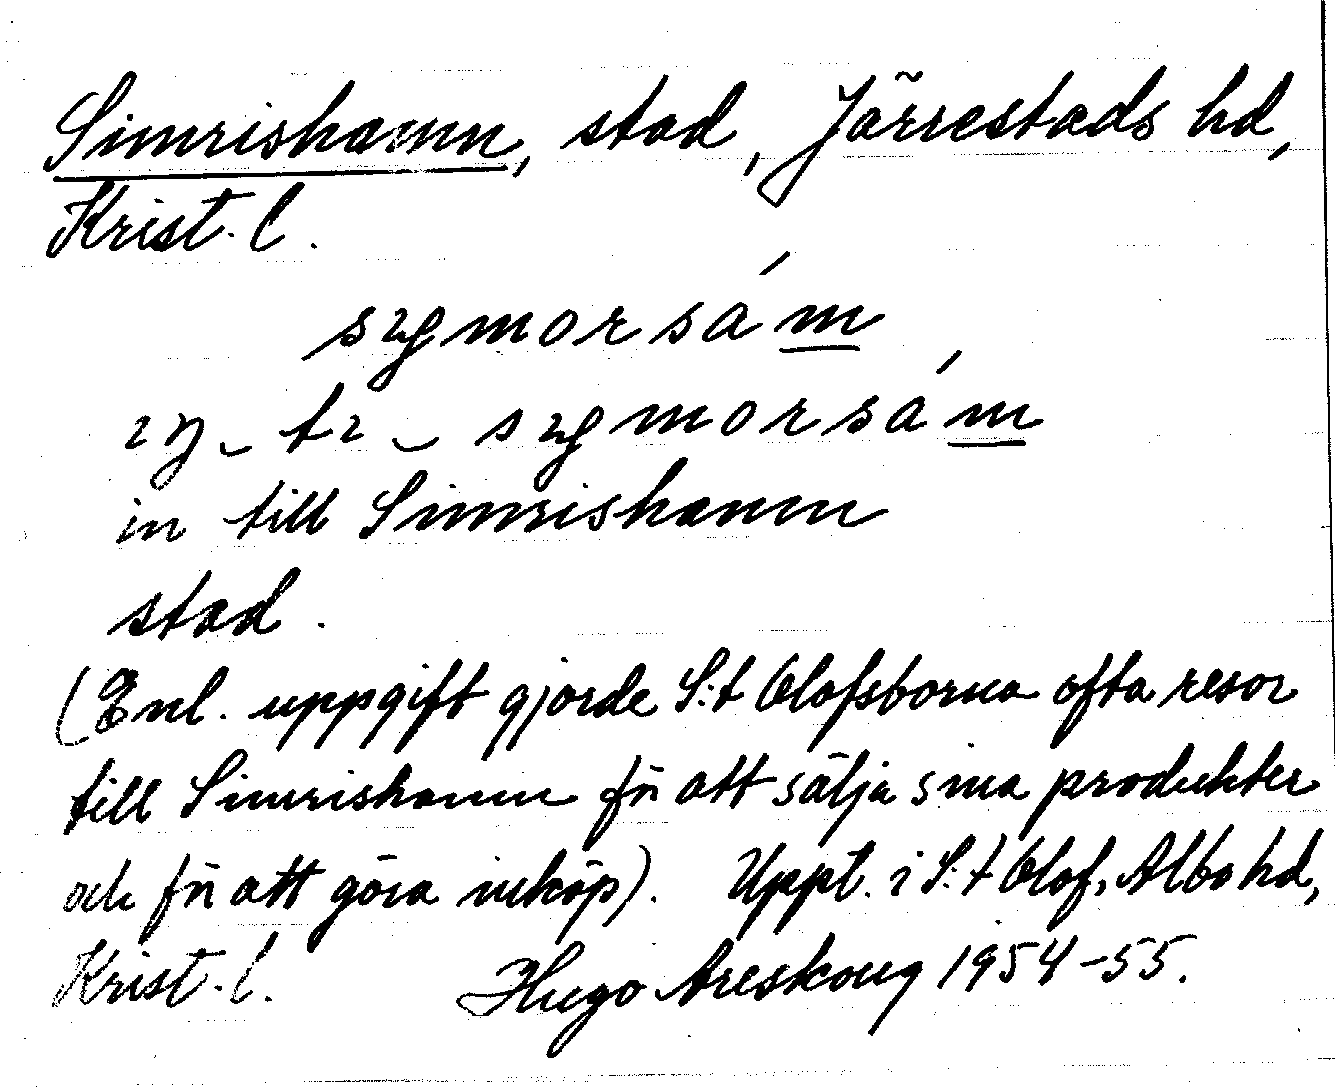 Simrishamn, stad, Järrestads hd,
Krist. l.
in till Simrishamn
stad.
(Enl. uppgift gjorde S:t Olofsborna ofta resor
till Simrishamn för att sälja sina produkter
och för att göra inköp). Uppt. i S:t Olof, Albo hd,
Krist. l. Hugo Areskoug 1954-55.